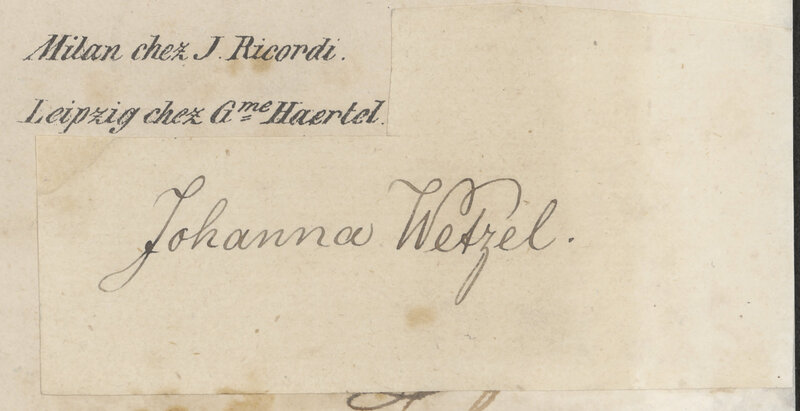 Milan chez J. Ricordi.
Leipzig chez Gme Haertel.
Johanna Wetzel.